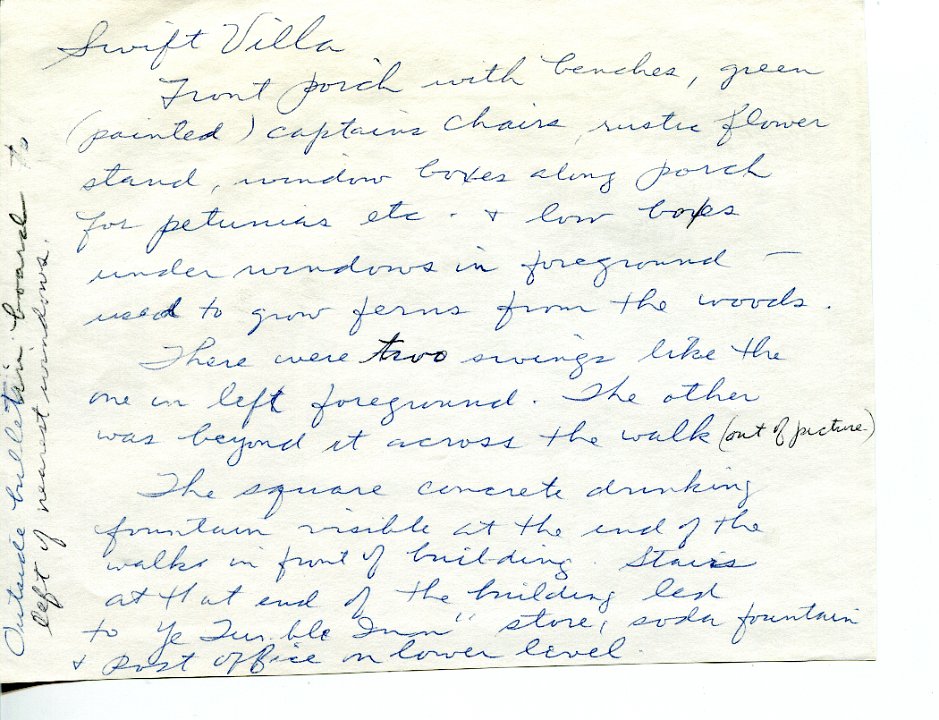 Swift Villa
Front porch with benches, green
(painted) captains chairs, rustic flower
stand, window boxes along porch
for petunias etc. & low boxes
under windows in foreground —
used to grow ferns from the woods.
There were two swings like the
one in left foreground. The other
was beyond it across the walk (out of picture.)
The square concrete drinking
fountain visible at the end of the
walks in front of building. Stairs
at that end of the building led
to "Ye Tumble Inn" store, soda fountain
& post office on lower level.
Outside bulletin board to
left of nearest windows.